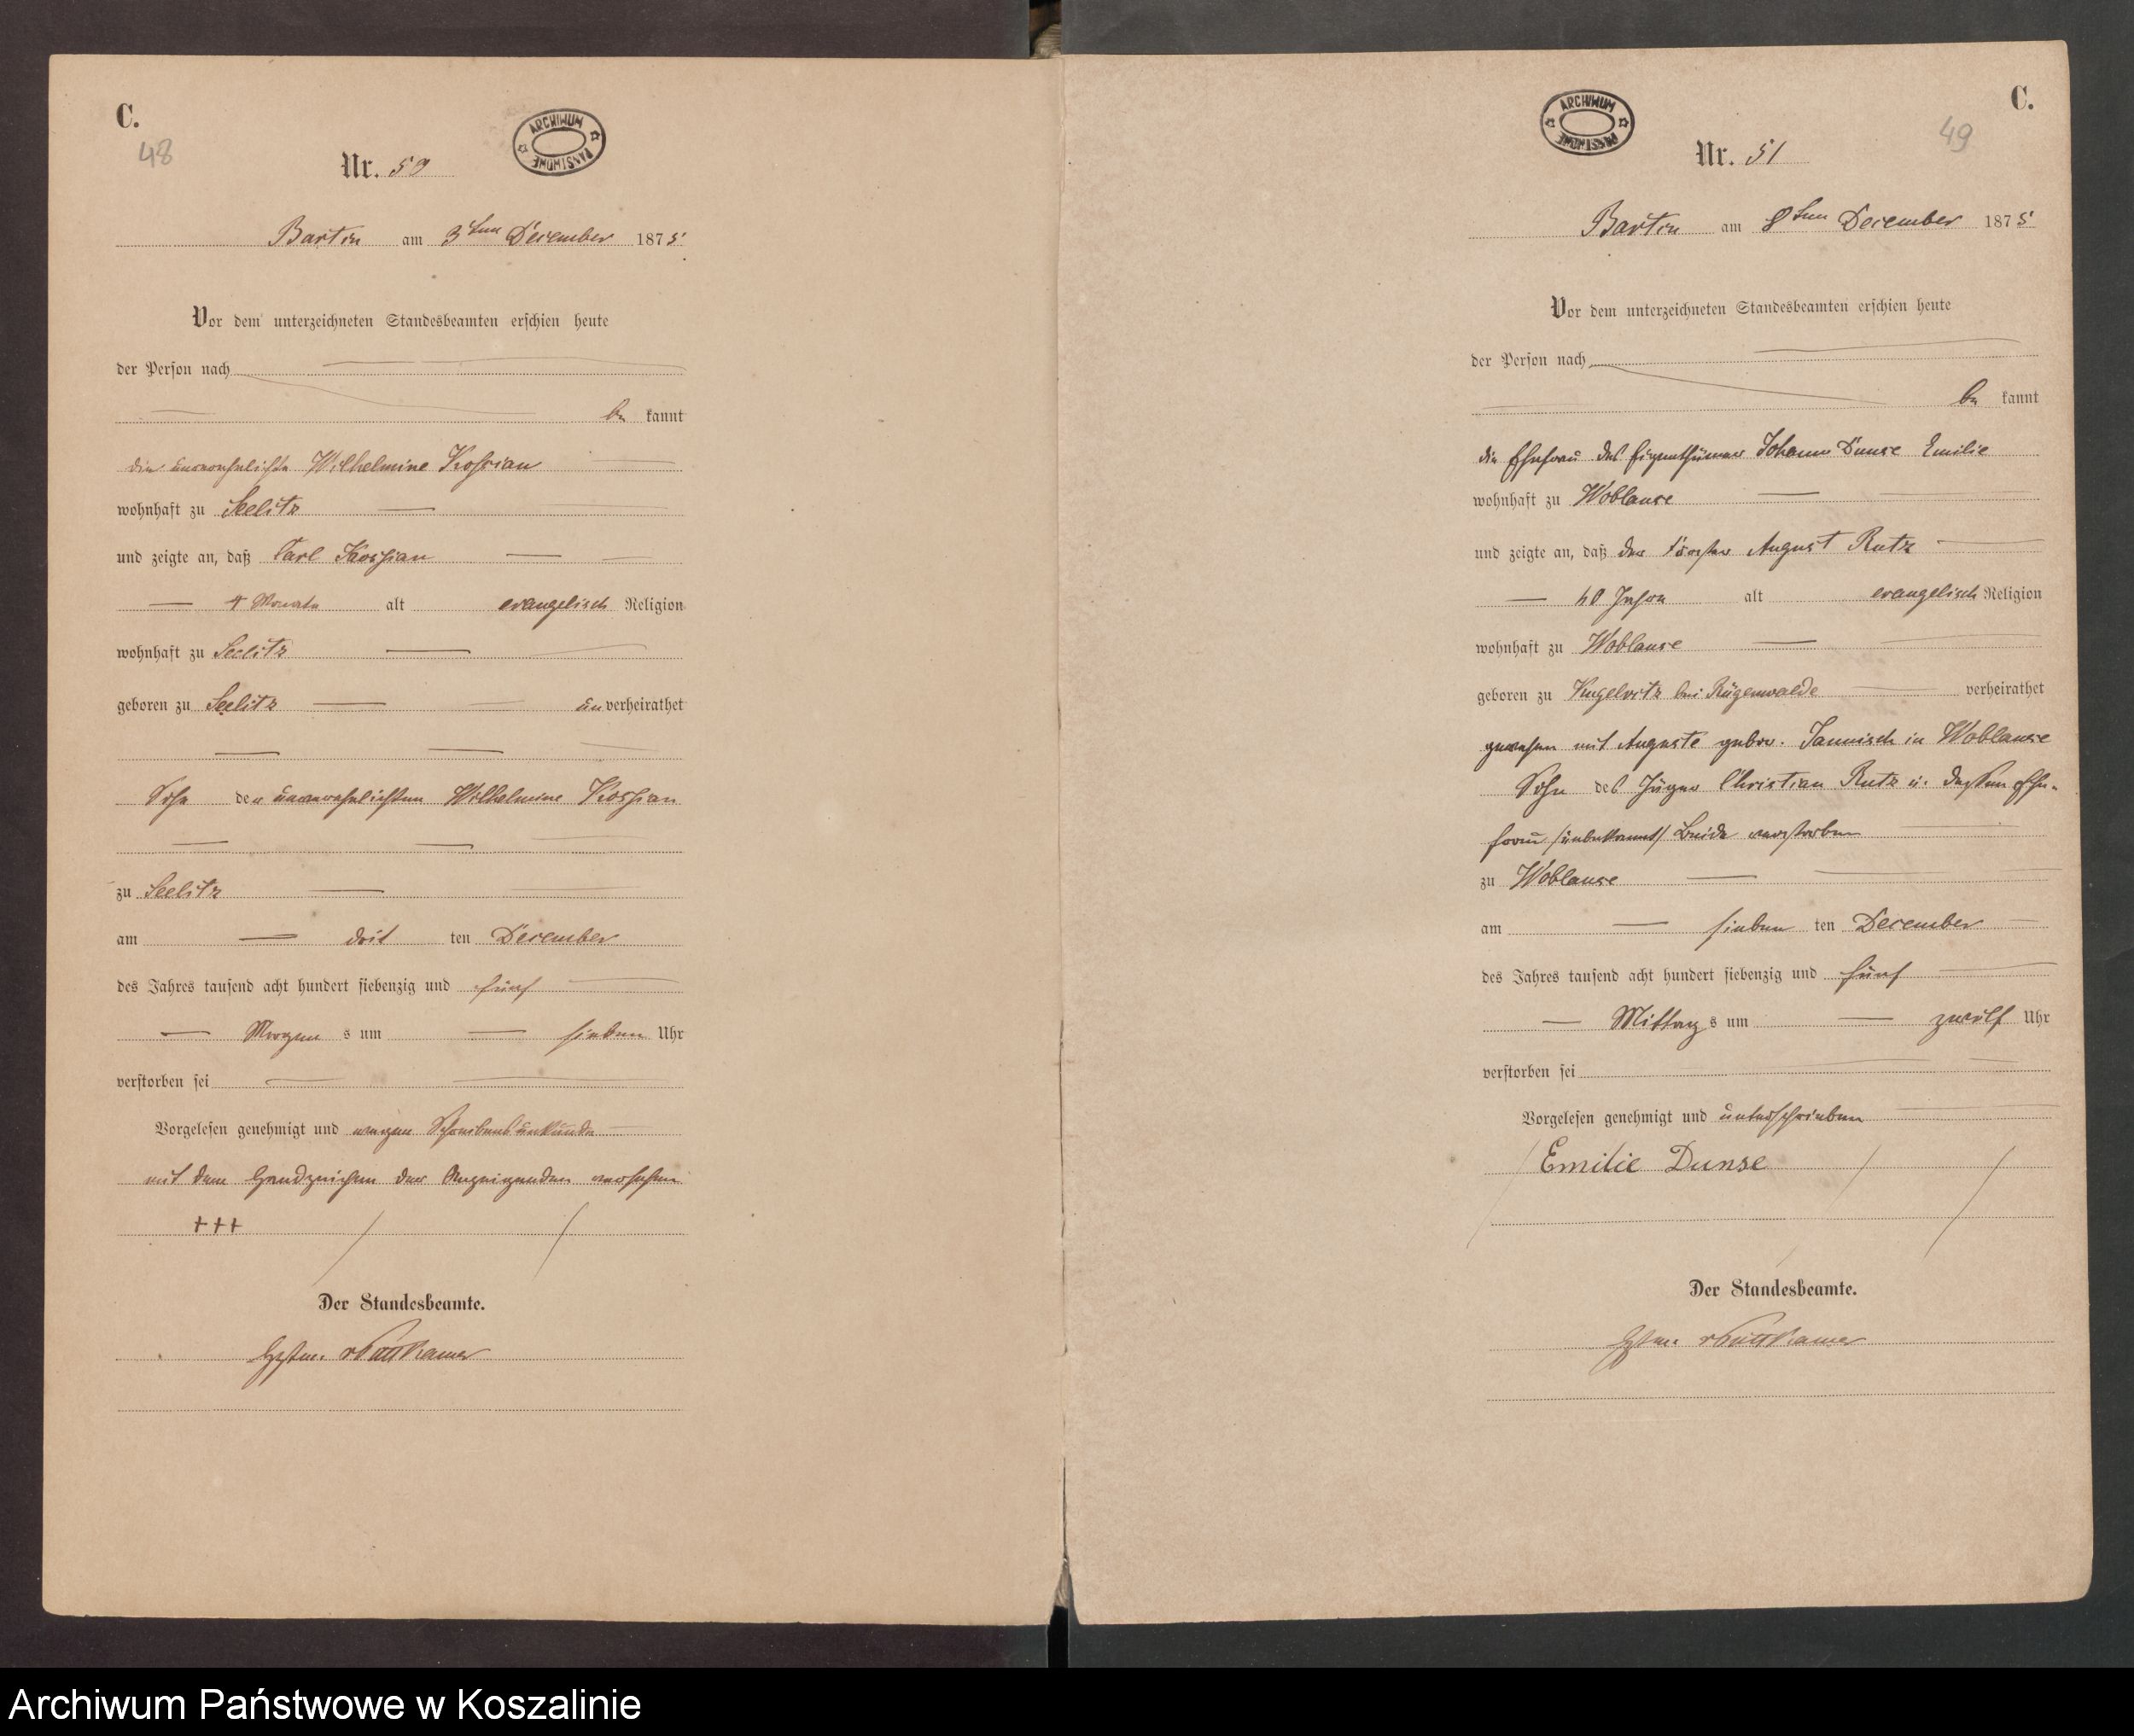 C.
48
ARCHIWUM PAŃSTWOWE
Nr. 50
Bartin am 3ten December 1875
Vor dem unterzeichneten Standesbeamten erschien heute
der Person nach
be kannt
die unverehelichte Wilhelmine Kossian
wohnhaft zu Seelitz
und zeigte an, daß Carl Kossian
4 Monate alt evangelisch Religion
wohnhaft zu Seelitz
geboren zu Seelitz un verheirathet
Sohn der unverehelichten Wilhelmine Kossian
zu Seelitz
am drit ten December
des Jahres tausend acht hundert siebenzig und fünf
Morgen s um sieben Uhr
verstorben sei
Vorgelesen genehmigt und wegen Schreibensunkunde
mit dem Handzeichen der Anzeigenden versehen
+++
Der Standesbeamte.
vPuttkamer
C.
49
ARCHIWUM PAŃSTWOWE
Nr. 51
Bartin am 8ten December 1875
Vor dem unterzeichneten Standesbeamten erschien heute
der Person nach
be kannt
die Ehefrau des Eigenthümer Johann Dunse Emilie
wohnhaft zu Woblanse
und zeigte an, daß der Förster August Rutz
40 Jahre alt evangelisch Religion
wohnhaft zu Woblanse
geboren zu Kugelwitz bei Rügenwalde verheirathet
gewesen mit Auguste gebor. Jannisch in Woblanse
Sohn des Jäger Christian Rutz u. dessen Ehe-
frau /unbekannt/ Beide verstorben
zu Woblanse
am sieben ten December
des Jahres tausend acht hundert siebenzig und fünf
Mittag s um zwölf Uhr
verstorben sei
Vorgelesen genehmigt und unterschrieben
Emilie Dunse
Der Standesbeamte.
vPuttkamer
Archiwum Państwowe w Koszalinie